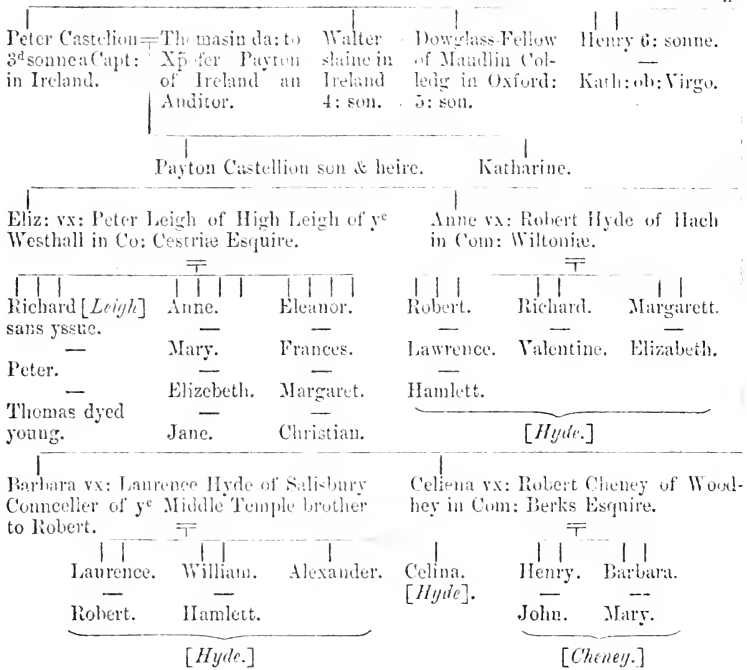 Peter Castelion
3ᵈ sonne a Capt:
in Ireland.
Thomasin da: to
Xp̄fer Payton
of Ireland an
Auditor.
Walter
slaine in
Ireland
4: son.
Dowglass Fellow
of Maudlin Col-
ledg in Oxford:
5: son.
Henry 6: sonne.
Kath: ob: Virgo.
Payton Castellion son & heire.
Katharine.
Eliz: vx: Peter Leigh of High Leigh of yᵉ
Westhall in Co: Cestriæ Esquire.
Anne vx: Robert Hyde of Hach
in Com: Wiltoniæ.
Richard [Leigh]
sans yssue.
Peter.
Thomas dyed
young.
Anne.
Mary.
Elizebeth.
Jane.
Eleanor.
Frances.
Margaret.
Christian.
Robert.
Lawrence.
Hamlett.
Richard.
Valentine.
Margarett.
Elizabeth.
[Hyde.]
Barbara vx: Laurence Hyde of Salisbury
Counceller of yᵉ Middle Temple brother
to Robert.
Celiena vx: Robert Cheney of Wood-
hey in Com: Berks Esquire.
Laurence.
Robert.
William.
Hamlett.
Alexander.
Celina.
[Hyde].
Henry.
John.
Barbara.
Mary.
[Hyde.]
[Cheney.]